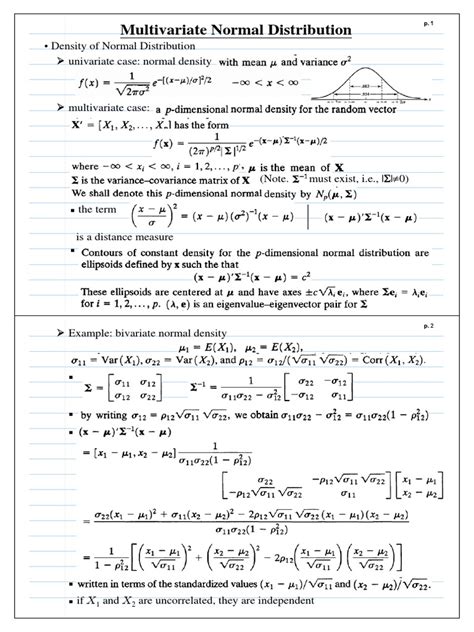 p. 1
Multivariate Normal Distribution
• Density of Normal Distribution
➢ univariate case: normal density with mean μ and variance σ²
f(x) = 1/√(2πσ²) e^{-[(x-μ)/σ]²/2}   -∞ < x < ∞
➢ multivariate case: a p-dimensional normal density for the random vector
X' = [X₁, X₂,..., Xₚ] has the form
f(x) = 1/((2π)^{p/2}|Σ|^{1/2}) e^{-(x-μ)'Σ⁻¹(x-μ)/2}
where -∞ < xᵢ < ∞, i = 1, 2,..., p. μ is the mean of X
Σ is the variance–covariance matrix of X (Note. Σ⁻¹ must exist, i.e., |Σ|≠0)
We shall denote this p-dimensional normal density by Nₚ(μ, Σ)
▪ the term ((x - μ)/σ)² = (x - μ)(σ²)⁻¹(x - μ) | (x - μ)'Σ⁻¹(x - μ)
is a distance measure
▪ Contours of constant density for the p-dimensional normal distribution are
ellipsoids defined by x such the that
(x - μ)'Σ⁻¹(x - μ) = c²
These ellipsoids are centered at μ and have axes ±c√λᵢ eᵢ, where Σeᵢ = λᵢeᵢ
for i = 1, 2,..., p. (λ, e) is an eigenvalue–eigenvector pair for Σ
p. 2
➢ Example: bivariate normal density
μ₁ = E(X₁), μ₂ = E(X₂),
σ₁₁ = Var(X₁), σ₂₂ = Var(X₂), and ρ₁₂ = σ₁₂/(√σ₁₁ √σ₂₂) = Corr(X₁, X₂).
▪ Σ = [σ₁₁ σ₁₂; σ₁₂ σ₂₂]   Σ⁻¹ = 1/(σ₁₁σ₂₂ - σ₁₂²) [σ₂₂ -σ₁₂; -σ₁₂ σ₁₁]
▪ by writing σ₁₂ = ρ₁₂√σ₁₁ √σ₂₂, we obtain σ₁₁σ₂₂ - σ₁₂² = σ₁₁σ₂₂(1 - ρ₁₂²)
▪ (x - μ)'Σ⁻¹(x - μ)
= [x₁ - μ₁, x₂ - μ₂] 1/(σ₁₁σ₂₂(1 - ρ₁₂²))
[σ₂₂ -ρ₁₂√σ₁₁ √σ₂₂; -ρ₁₂√σ₁₁ √σ₂₂ σ₁₁] [x₁ - μ₁; x₂ - μ₂]
= (σ₂₂(x₁ - μ₁)² + σ₁₁(x₂ - μ₂)² - 2ρ₁₂√σ₁₁ √σ₂₂ (x₁ - μ₁)(x₂ - μ₂))/(σ₁₁σ₂₂(1 - ρ₁₂²))
= 1/(1 - ρ₁₂²) [((x₁ - μ₁)/√σ₁₁)² + ((x₂ - μ₂)/√σ₂₂)² - 2ρ₁₂((x₁ - μ₁)/√σ₁₁)((x₂ - μ₂)/√σ₂₂)]
▪ written in terms of the standardized values (x₁ - μ₁)/√σ₁₁ and (x₂ - μ₂)/√σ₂₂.
▪ if X₁ and X₂ are uncorrelated, they are independent